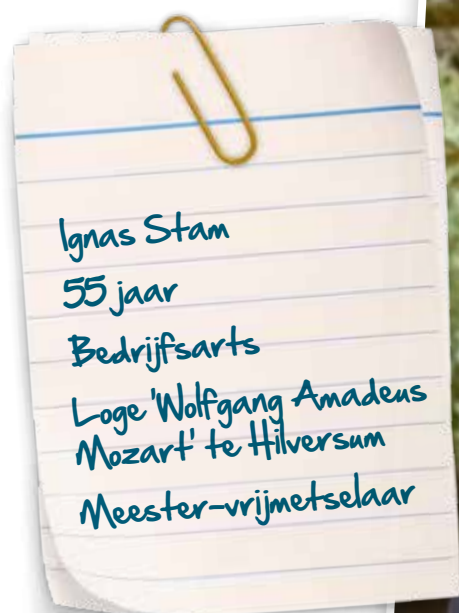 Ignas Stam
55 jaar
Bedrijfsarts
Loge 'Wolfgang Amadeus
Mozart' te Hilversum
Meester-vrijmetselaar